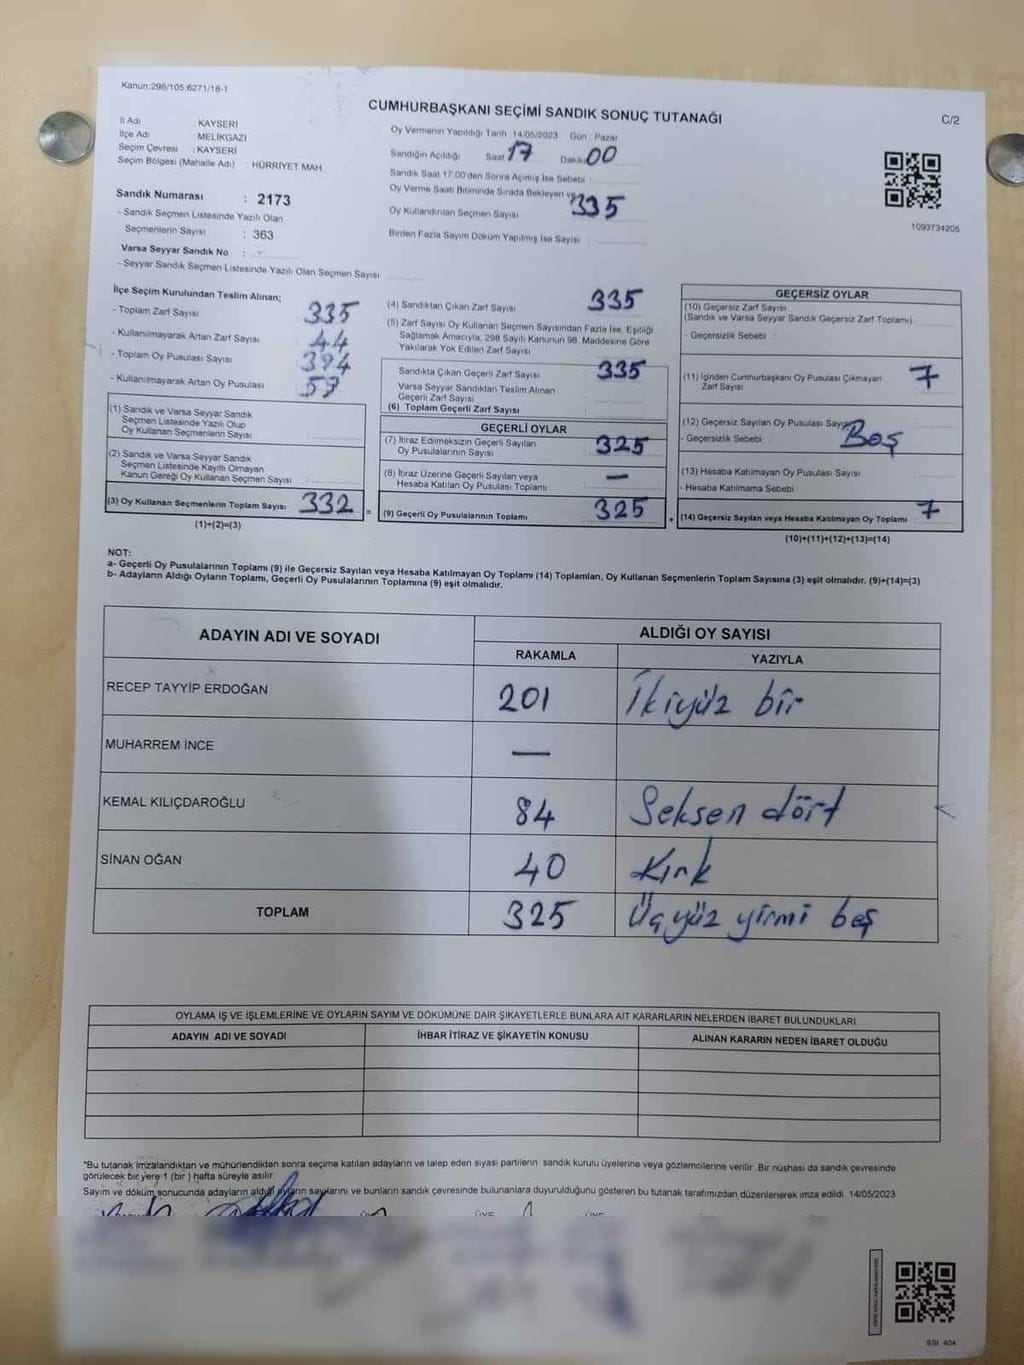 Kanun:298/105,6271/18-1
CUMHURBAŞKANI SEÇİMİ SANDIK SONUÇ TUTANAĞI
C/2
İl Adı : KAYSERİ
İlçe Adı : MELİKGAZİ
Seçim Çevresi : KAYSERİ
Seçim Bölgesi (Mahalle Adı) : HÜRRİYET MAH.
Sandık Numarası : 2173
- Sandık Seçmen Listesinde Yazılı Olan
Seçmenlerin Sayısı : 363
Varsa Seyyar Sandık No :
- Seyyar Sandık Seçmen Listesinde Yazılı Olan Seçmen Sayısı
Oy Vermenin Yapıldığı Tarih :14/05/2023 Gün : Pazar
Sandığın Açıldığı Saat 17 Dakika 00
Sandık Saat 17:00'den Sonra Açılmış İse Sebebi :
Oy Verme Saati Bitiminde Sırada Bekleyen ve
Oy Kullandırılan Seçmen Sayısı : 335
Birden Fazla Sayım Döküm Yapılmış İse Sayısı :
1093734205
İlçe Seçim Kurulundan Teslim Alınan;
- Toplam Zarf Sayısı 335
- Kullanılmayarak Artan Zarf Sayısı 44
- Toplam Oy Pusulası Sayısı 394
- Kullanılmayarak Artan Oy Pusulası 59
(1) Sandık ve Varsa Seyyar Sandık
Seçmen Listesinde Yazılı Olup
Oy Kullanan Seçmenlerin Sayısı :
(2) Sandık ve Varsa Seyyar Sandık
Seçmen Listesinde Kayıtlı Olmayan
Kanun Gereği Oy Kullanan Seçmen Sayısı :
(3) Oy Kullanan Seçmenlerin Toplam Sayısı : 332 =
(1)+(2)=(3)
(4) Sandıktan Çıkan Zarf Sayısı 335
(5) Zarf Sayısı Oy Kullanan Seçmen Sayısından Fazla İse, Eşitliği
Sağlamak Amacıyla, 298 Sayılı Kanunun 98. Maddesine Göre
Yakılarak Yok Edilen Zarf Sayısı :
Sandıkta Çıkan Geçerli Zarf Sayısı : 335
Varsa Seyyar Sandıktan Teslim Alınan
Geçerli Zarf Sayısı
(6) Toplam Geçerli Zarf Sayısı
GEÇERLİ OYLAR
(7) İtiraz Edilmeksizin Geçerli Sayılan
Oy Pusulalarının Sayısı : 325
(8) İtiraz Üzerine Geçerli Sayılan veya
Hesaba Katılan Oy Pusulası Toplamı : —
(9) Geçerli Oy Pusulalarının Toplamı : 325 +
GEÇERSİZ OYLAR
(10) Geçersiz Zarf Sayısı
(Sandık ve Varsa Seyyar Sandık Geçersiz Zarf Toplamı)
- Geçersizlik Sebebi :
(11) İçinden Cumhurbaşkanı Oy Pusulası Çıkmayan
Zarf Sayısı 7
(12) Geçersiz Sayılan Oy Pusulası Sayısı
- Geçersizlik Sebebi : Boş
(13) Hesaba Katılmayan Oy Pusulası Sayısı
- Hesaba Katılmama Sebebi :
(14) Geçersiz Sayılan veya Hesaba Katılmayan Oy Toplamı : 7
(10)+(11)+(12)+(13)=(14)
NOT:
a- Geçerli Oy Pusulalarının Toplamı (9) ile Geçersiz Sayılan veya Hesaba Katılmayan Oy Toplamı (14) Toplamları, Oy Kullanan Seçmenlerin Toplam Sayısına (3) eşit olmalıdır. (9)+(14)=(3)
b- Adayların Aldığı Oyların Toplamı, Geçerli Oy Pusulalarının Toplamına (9) eşit olmalıdır.
ADAYIN ADI VE SOYADI ALDIĞI OY SAYISI
RAKAMLA YAZIYLA
RECEP TAYYİP ERDOĞAN 201 İkiyüz bir
MUHARREM İNCE —
KEMAL KILIÇDAROĞLU 84 Seksen dört
SİNAN OĞAN 40 Kırk
TOPLAM 325 Üçyüz yirmi beş
OYLAMA İŞ VE İŞLEMLERİNE VE OYLARIN SAYIM VE DÖKÜMÜNE DAİR ŞİKAYETLERLE BUNLARA AİT KARARLARIN NELERDEN İBARET BULUNDUKLARI
ADAYIN ADI VE SOYADI İHBAR İTİRAZ VE ŞİKAYETİN KONUSU ALINAN KARARIN NEDEN İBARET OLDUĞU
*Bu tutanak imzalandıktan ve mühürlendikten sonra seçime katılan adayların ve talep eden siyasi partilerin sandık kurulu üyelerine veya gözlemcilerine verilir. Bir nüshası da sandık çevresinde
görülecek bir yere 1 (bir ) hafta süreyle asılır.
Sayım ve döküm sonucunda adayların aldığı oyların sayılarını ve bunların sandık çevresinde bulunanlara duyurulduğunu gösteren bu tutanak tarafımızdan düzenlenerek imza edildi. 14/05/2023